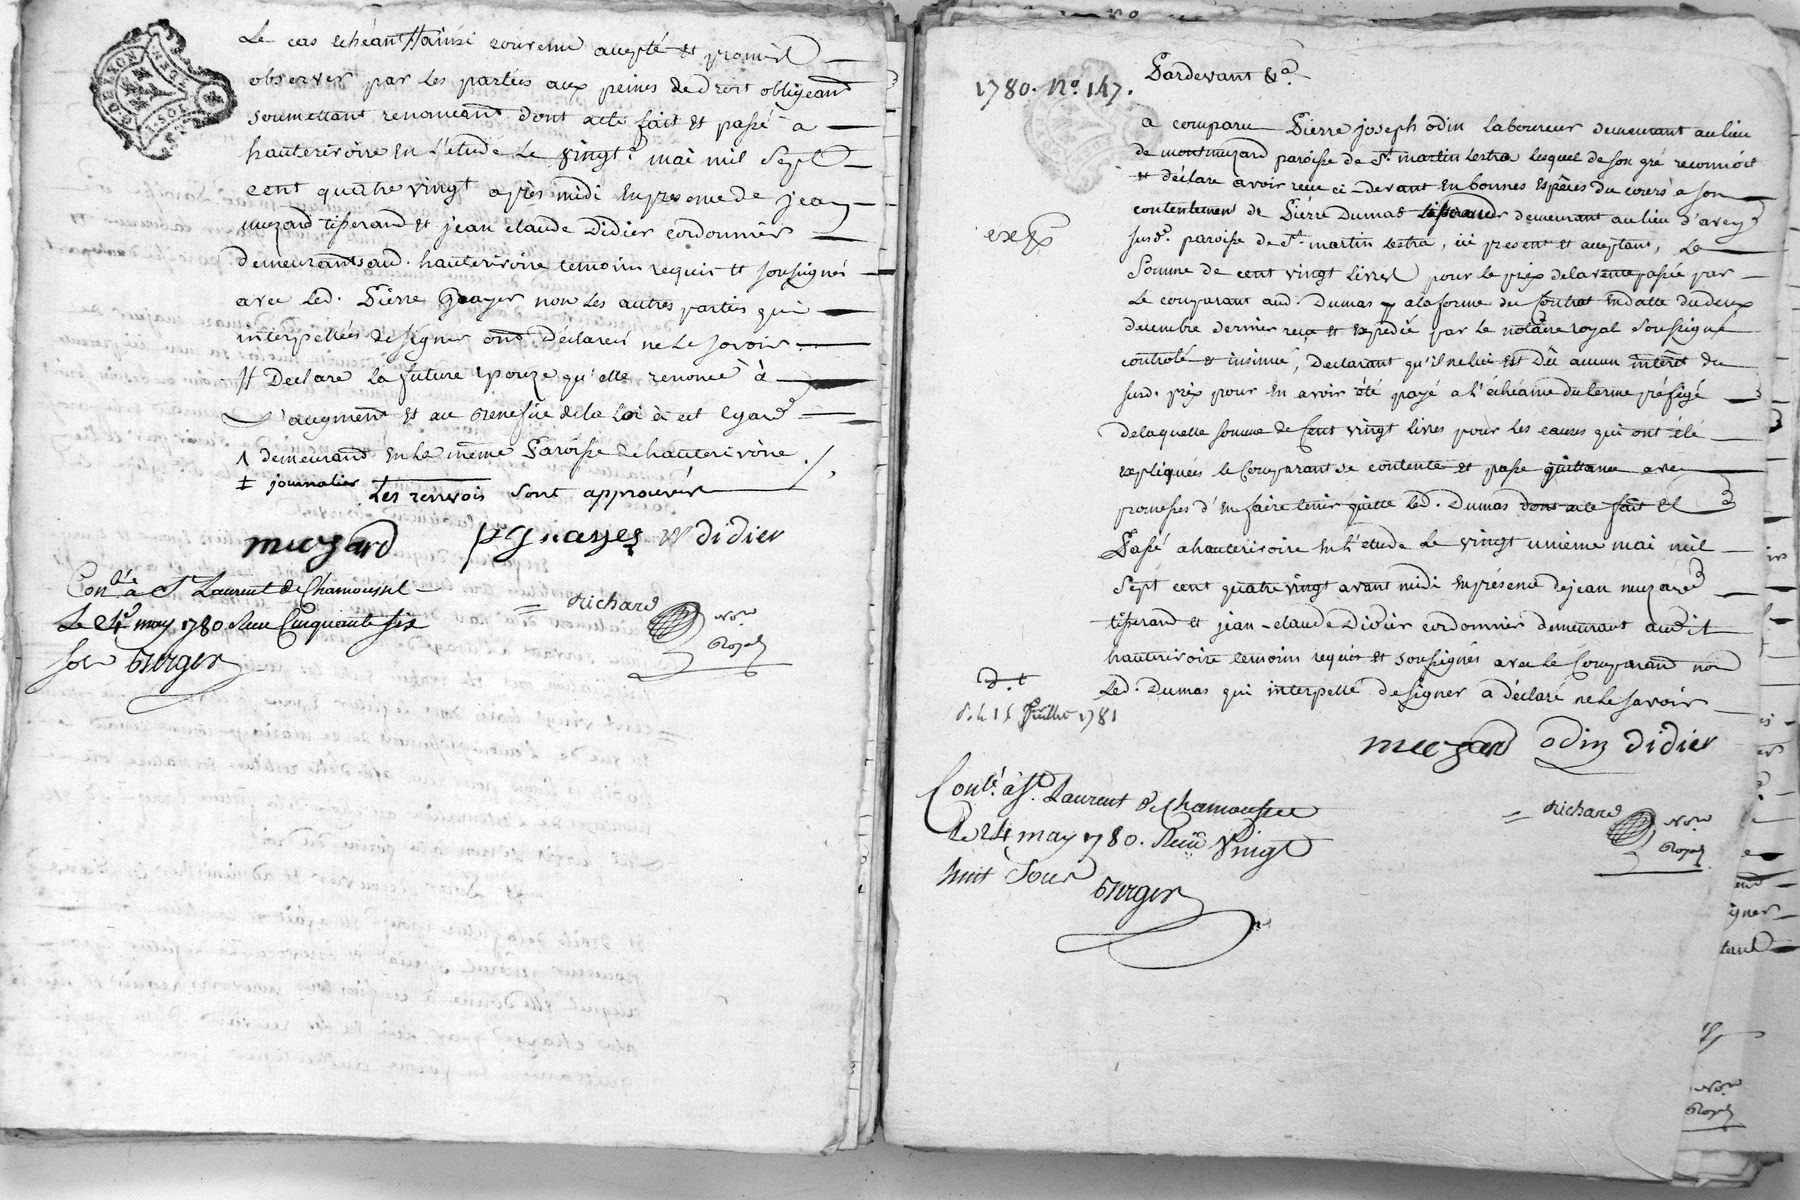 Le cas echéant # ainsi convenu accepté et promis
observer par les parties aux peines de droit obligeant
soumettant renonceant dont acte fait et passé a
hauterivoire en l'etude le vingt mai mil sept
cent quatre vingt après midi en presence de jean
muzard tisserand et jean claude Didier cordonnier
demeurants aud. hauterivoire temoins requis et soussignés
avec led. Pierre non les autres parties qui
interpellées de signer ont déclaré ne le savoir.
# Declare la future epouze qu'elle renonce à
l'augment et au benefice de la loi à cet egard
1 demeurand en la même Paroisse de hauterivoire
‡ journalier Les renvois sont approuvés
muzard didier
Con.lé a St Laurent de Chamousset
Le 24 may 1780 Reçu Cinquante six
sols Berger
Richard
No.re
Royal
1780. No. 147.
Pardevant &a
a comparu Pierre joseph odin laboureur demeurant au lieu
de montmuzard paroisse de St. martin lestra lequel de son gré reconnoit
et déclare avoir reçu ci-devant en bonnes espèces du cours a son
contentement de Piérre Dumas demeurant au lieu d'
susd. paroisse de St. martin lestra, ici present et acceptant, Le
Somme de cent vingt livres pour le prix de la vente passée par
Le comparant aud. Dumas a la forme du Contrat en datte du deux
decembre dernier reçu et expedié par le notaire royal Soussigné
controlé et insinué, Declarant qu'il ne lui est Dû aucun intérêt du
susd. prix pour en avoir été payé a l'échéance du terme préfigé
de laquelle somme de Cent vingt livres pour les causes qui ont été
expliquées le Comparant se contente et passe quittance avec
promesses d'en faire tenir quitte led. Dumas dont acte fait et
Passé a hauterivoire en l'etude Le vingt unième mai mil
Sept cent quatre vingt avant midi en présence de jean muzard
tisserand et jean-claude Didier cordonnier demeurant audit
hauterivoire temoins requis et soussignés avec le Comparand non
Led. Dumas qui interpellé de signer a déclaré ne le savoir
d. le 15 Juillet 1781
muzard odin didier
Con.lé à St. Laurent de Chamousset
Le 24 may 1780. Reçu Vingt
huit Sous
Berger
Richard
No.re
Royal